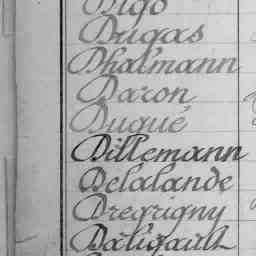 Digo
Dugas
Dhalmann
Daron
Duqué
Dillemann
Delalande
Dregrigny
Daligault